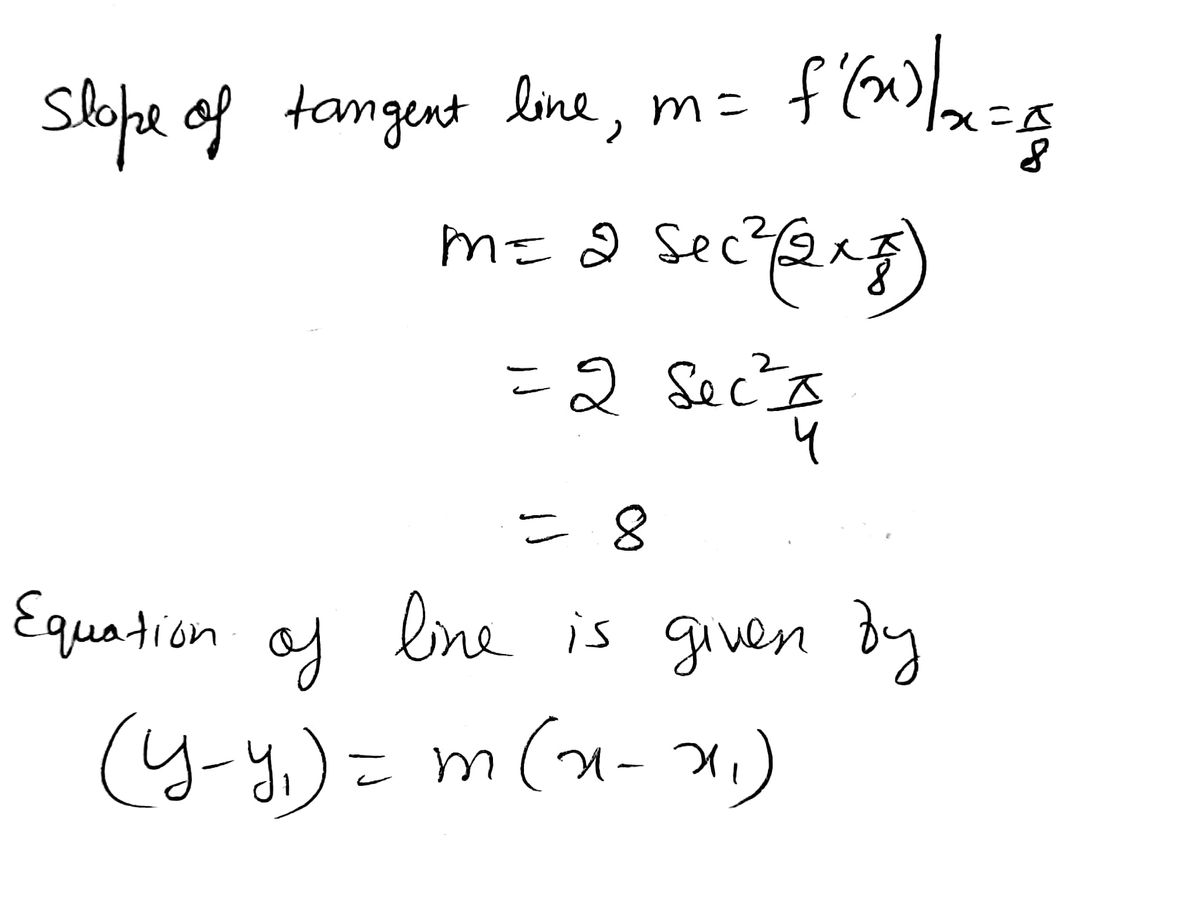 Slope of tangent line, m = f'(x)|x=π/8
m = 2 Sec²(2×π/8)
= 2 Sec²π/4
= 8
Equation of line is given by
(y-y₁) = m(x-x₁)